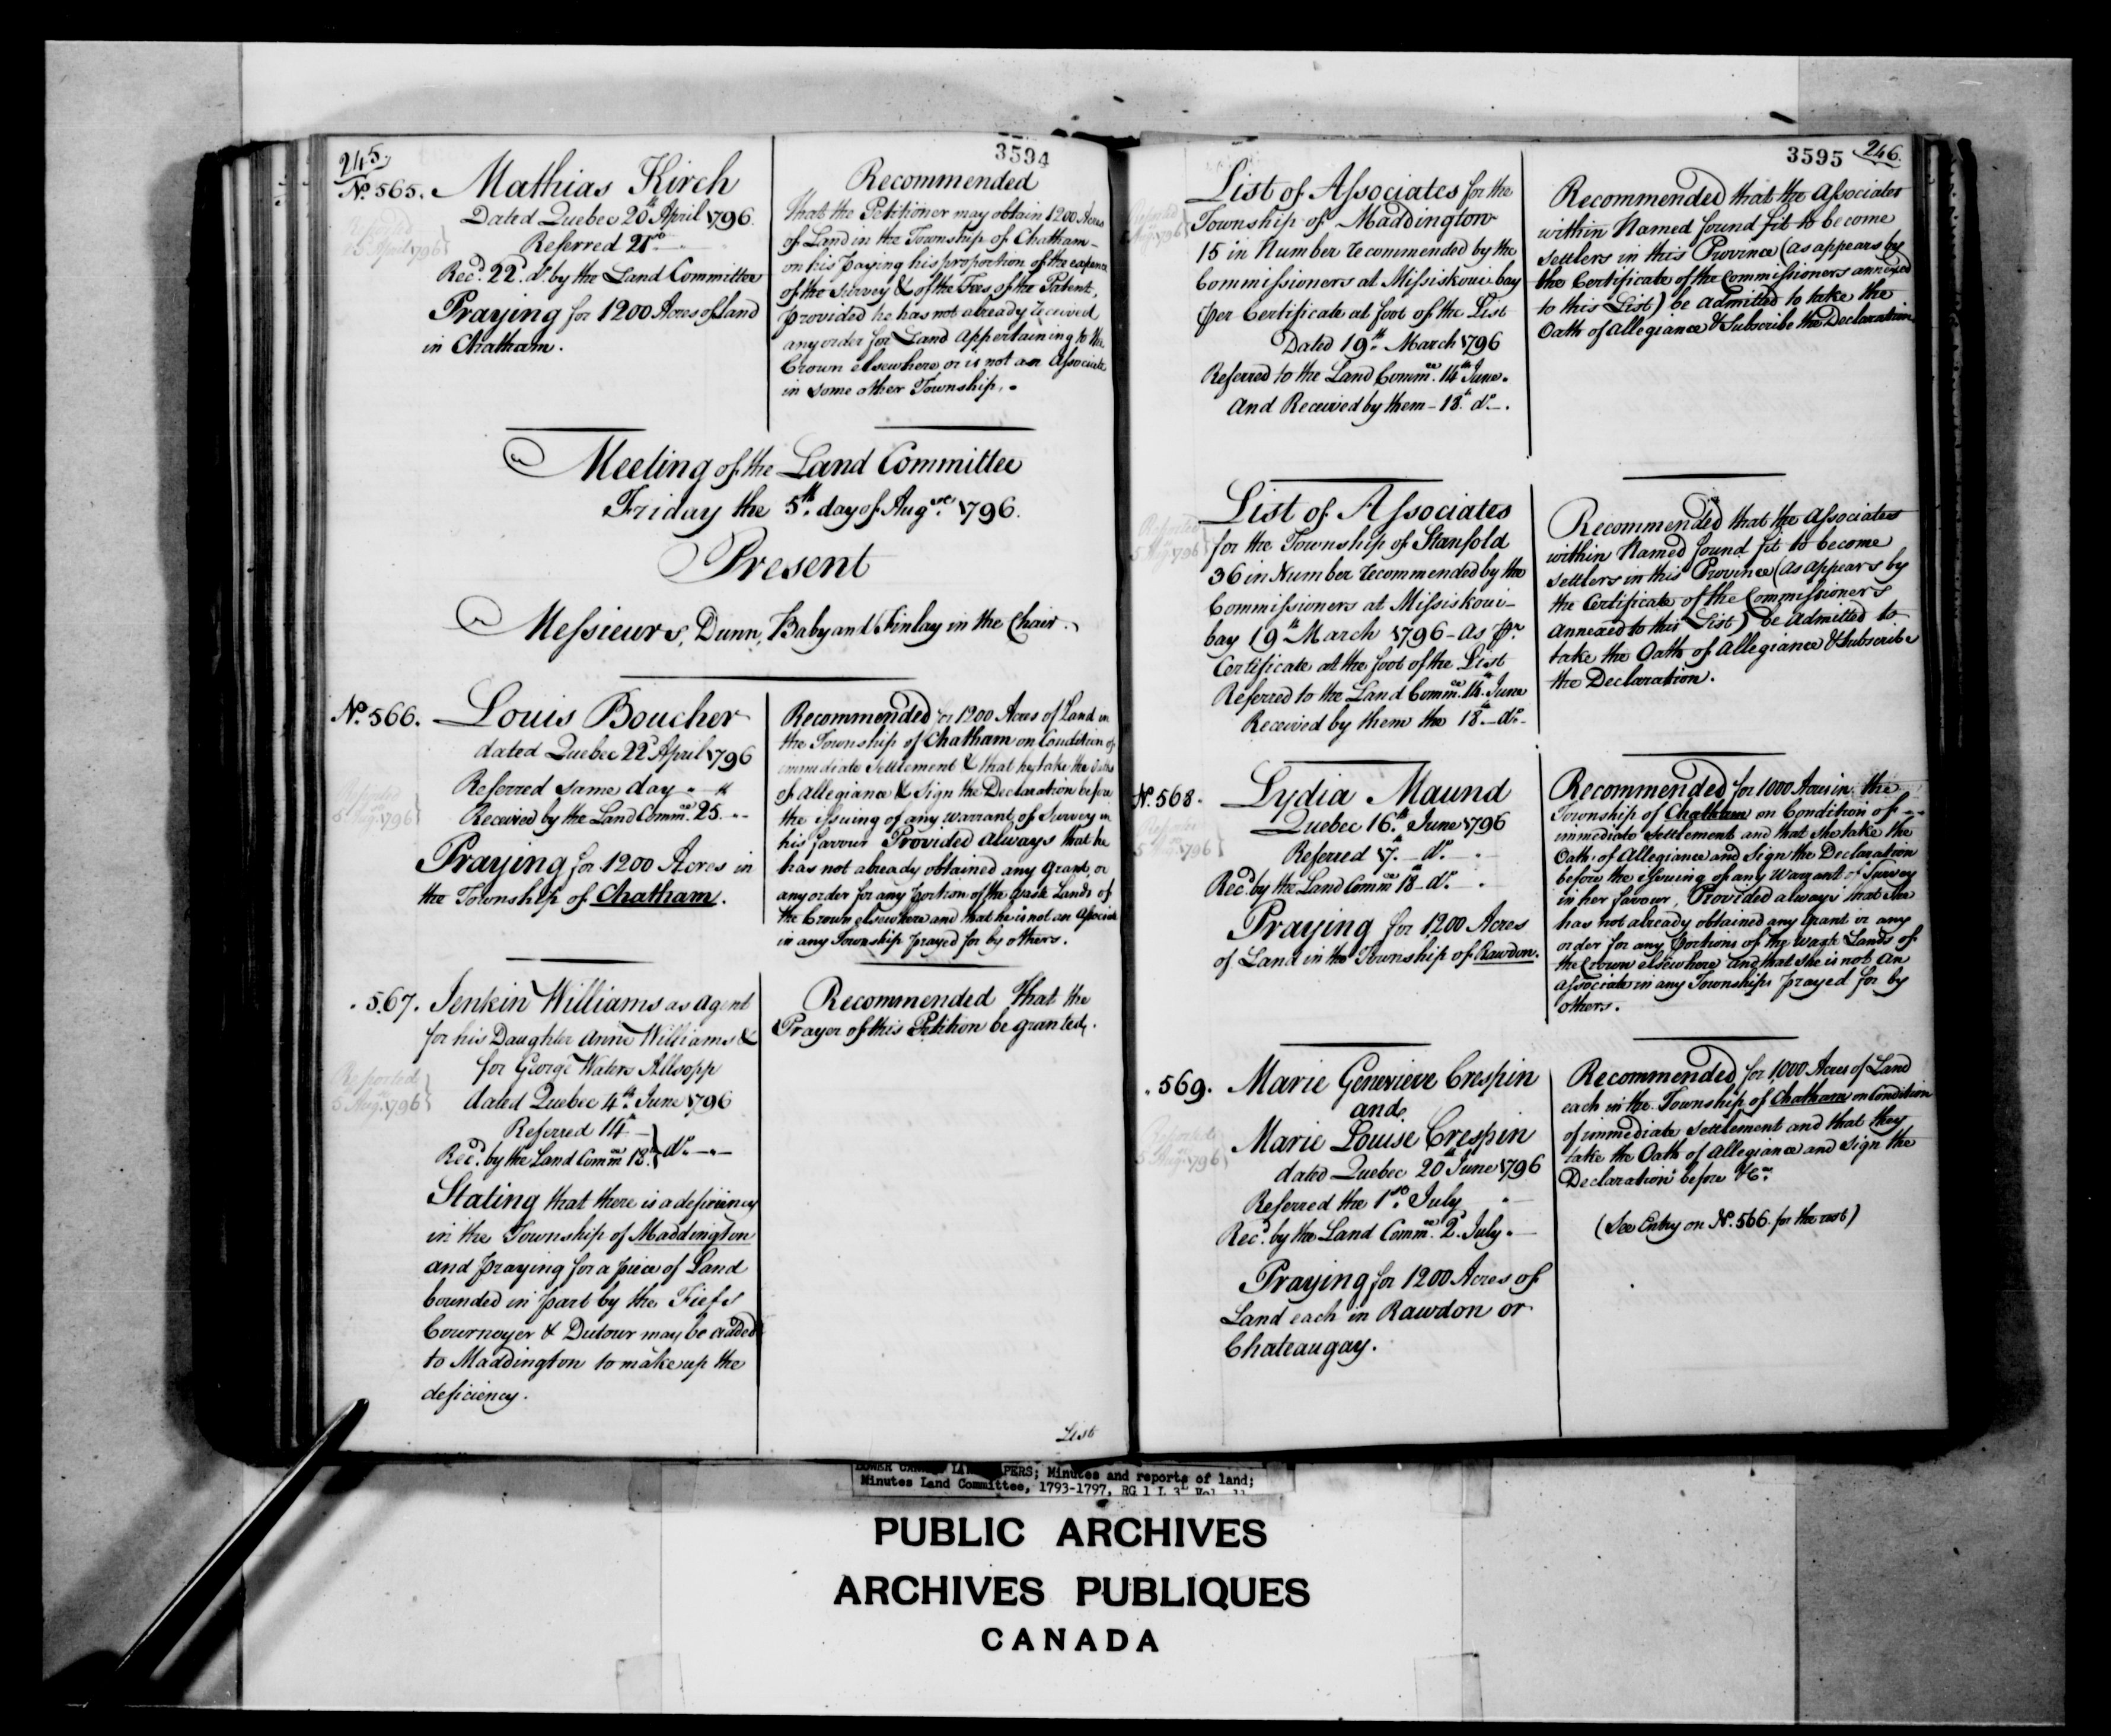 245
3594
No. 565. Mathias Kirch
Dated Quebec 20th April 1796.
Referred 21st
Recd. 22d. do. by the Land Committee
Praying for 1200 Acres of Land
in Chatham.
Recommended
that the Petitioner may obtain 1200 Acres
of Land in the Township of Chatham -
on his paying his proportion of the expence
of the Survey & of the Fees of the Patent,
provided he has not already received
any order for Land appertaining to the
Crown elsewhere or is not an Associate
in some other Township. -
Meeting of the Land Committee
Friday the 5th. day of Augst. 1796.
Present
Messieurs, Dunn, Baby and Finlay in the Chair.
No. 566. Louis Boucher
dated Quebec 22d April 1796
Referred same day
Received by the Land Commee. 25.
Praying for 1200 Acres in
the Township of Chatham.
5 Augt. 1796
Recommended for 1200 Acres of Land in
the Township of Chatham on Condition of
immediate Settlement & that he take the Oaths
of Allegiance & Sign the Declaration before
the issuing of any warrant of Survey in
his favour Provided always that he
has not already obtained any Grant, or
any order for any portion of the waste Lands of
the Crown elsewhere and that he is not an Associate
in any Township prayed for by others.
. 567. Jenkin Williams as Agent
for his Daughter Anne Williams &
for George Waters Allsopp
dated Quebec 4th. June 1796
Referred 14th
Recd. by the Land Commee 18. } do.
Reported
5 Augt. 1796
Stating that there is a deficiency
in the Township of Maddington
and praying for a piece of Land
bounded in part by the Fiefs
Cournoyer & Dutour may be added
to Maddington to make up the
deficiency.
Recommended That the
Prayer of this Petition be granted.
List
3595 246.
List of Associates for the
Township of Maddington
15 in Number recommended by the
Commissioners at Missiskoui bay
per Certificate at foot of the List
Dated 19th. March 1796
Referred to the Land Commee. 14th June.
And Received by them - 18th. do.
Recommended that the Associates
within Named found fit to become
settlers in this Province (as appears by
the Certificate of the Commissioners annexed
to this List) be admitted to take the
Oath of Allegiance & Subscribe the Declaration.
List of Associates
for the Township of Stanfold
36 in Number recommended by the
Commissioners at Missiskoui-
bay 19th March 1796 - As pr.
Certificate at the foot of the List
Referred to the Land Commee. 14th. June
Received by them the 18th do.
Reported
5 Augt. 1796
Recommended that the Associates
within Named found fit to become
settlers in this Province (as appears by
the Certificate of the Commissioners
annexed to this List) be admitted to
take the Oath of Allegiance & Subscribe
the Declaration.
No. 568. Lydia Maund
Quebec 16th. June 1796
Referred 17th. do.
Recd. by the Land Commee 18th do.
Praying for 1200 Acres
of Land in the Township of Rawdon.
5 Augt. 1796
Recommended for 1000 Acres in the
Township of Chatham on Condition of
immediate Settlement and that she take the
Oaths of Allegiance and Sign the Declaration
before the issuing of any Warrant of Survey
in her favour, Provided always that she
has not already obtained any Grant or any
order for any portions of the waste Lands of
the Crown elsewhere and that she is not an
Associate in any Townships prayed for by
others.
. 569. Marie Genevieve Crespin
and
Marie Louise Crespin
dated Quebec 20th June 1796
Referred the 1st. July
Recd. by the Land Commee. 2d. July.
Praying for 1200 Acres of
Land each in Rawdon or
Chateaugay.
Reported
5 Augt. 1796
Recommended for 1000 Acres of Land
each in the Township of Chatham on Condition
of immediate Settlement and that they
take the Oath of Allegiance and Sign the
Declaration before &ca.
(See Entry on No. 566 for the rest)
LOWER CANADA LAND PAPERS; Minutes and reports of land;
Minutes Land Committee, 1793-1797, RG 1 L 3L Vol. 11
PUBLIC ARCHIVES
ARCHIVES PUBLIQUES
CANADA